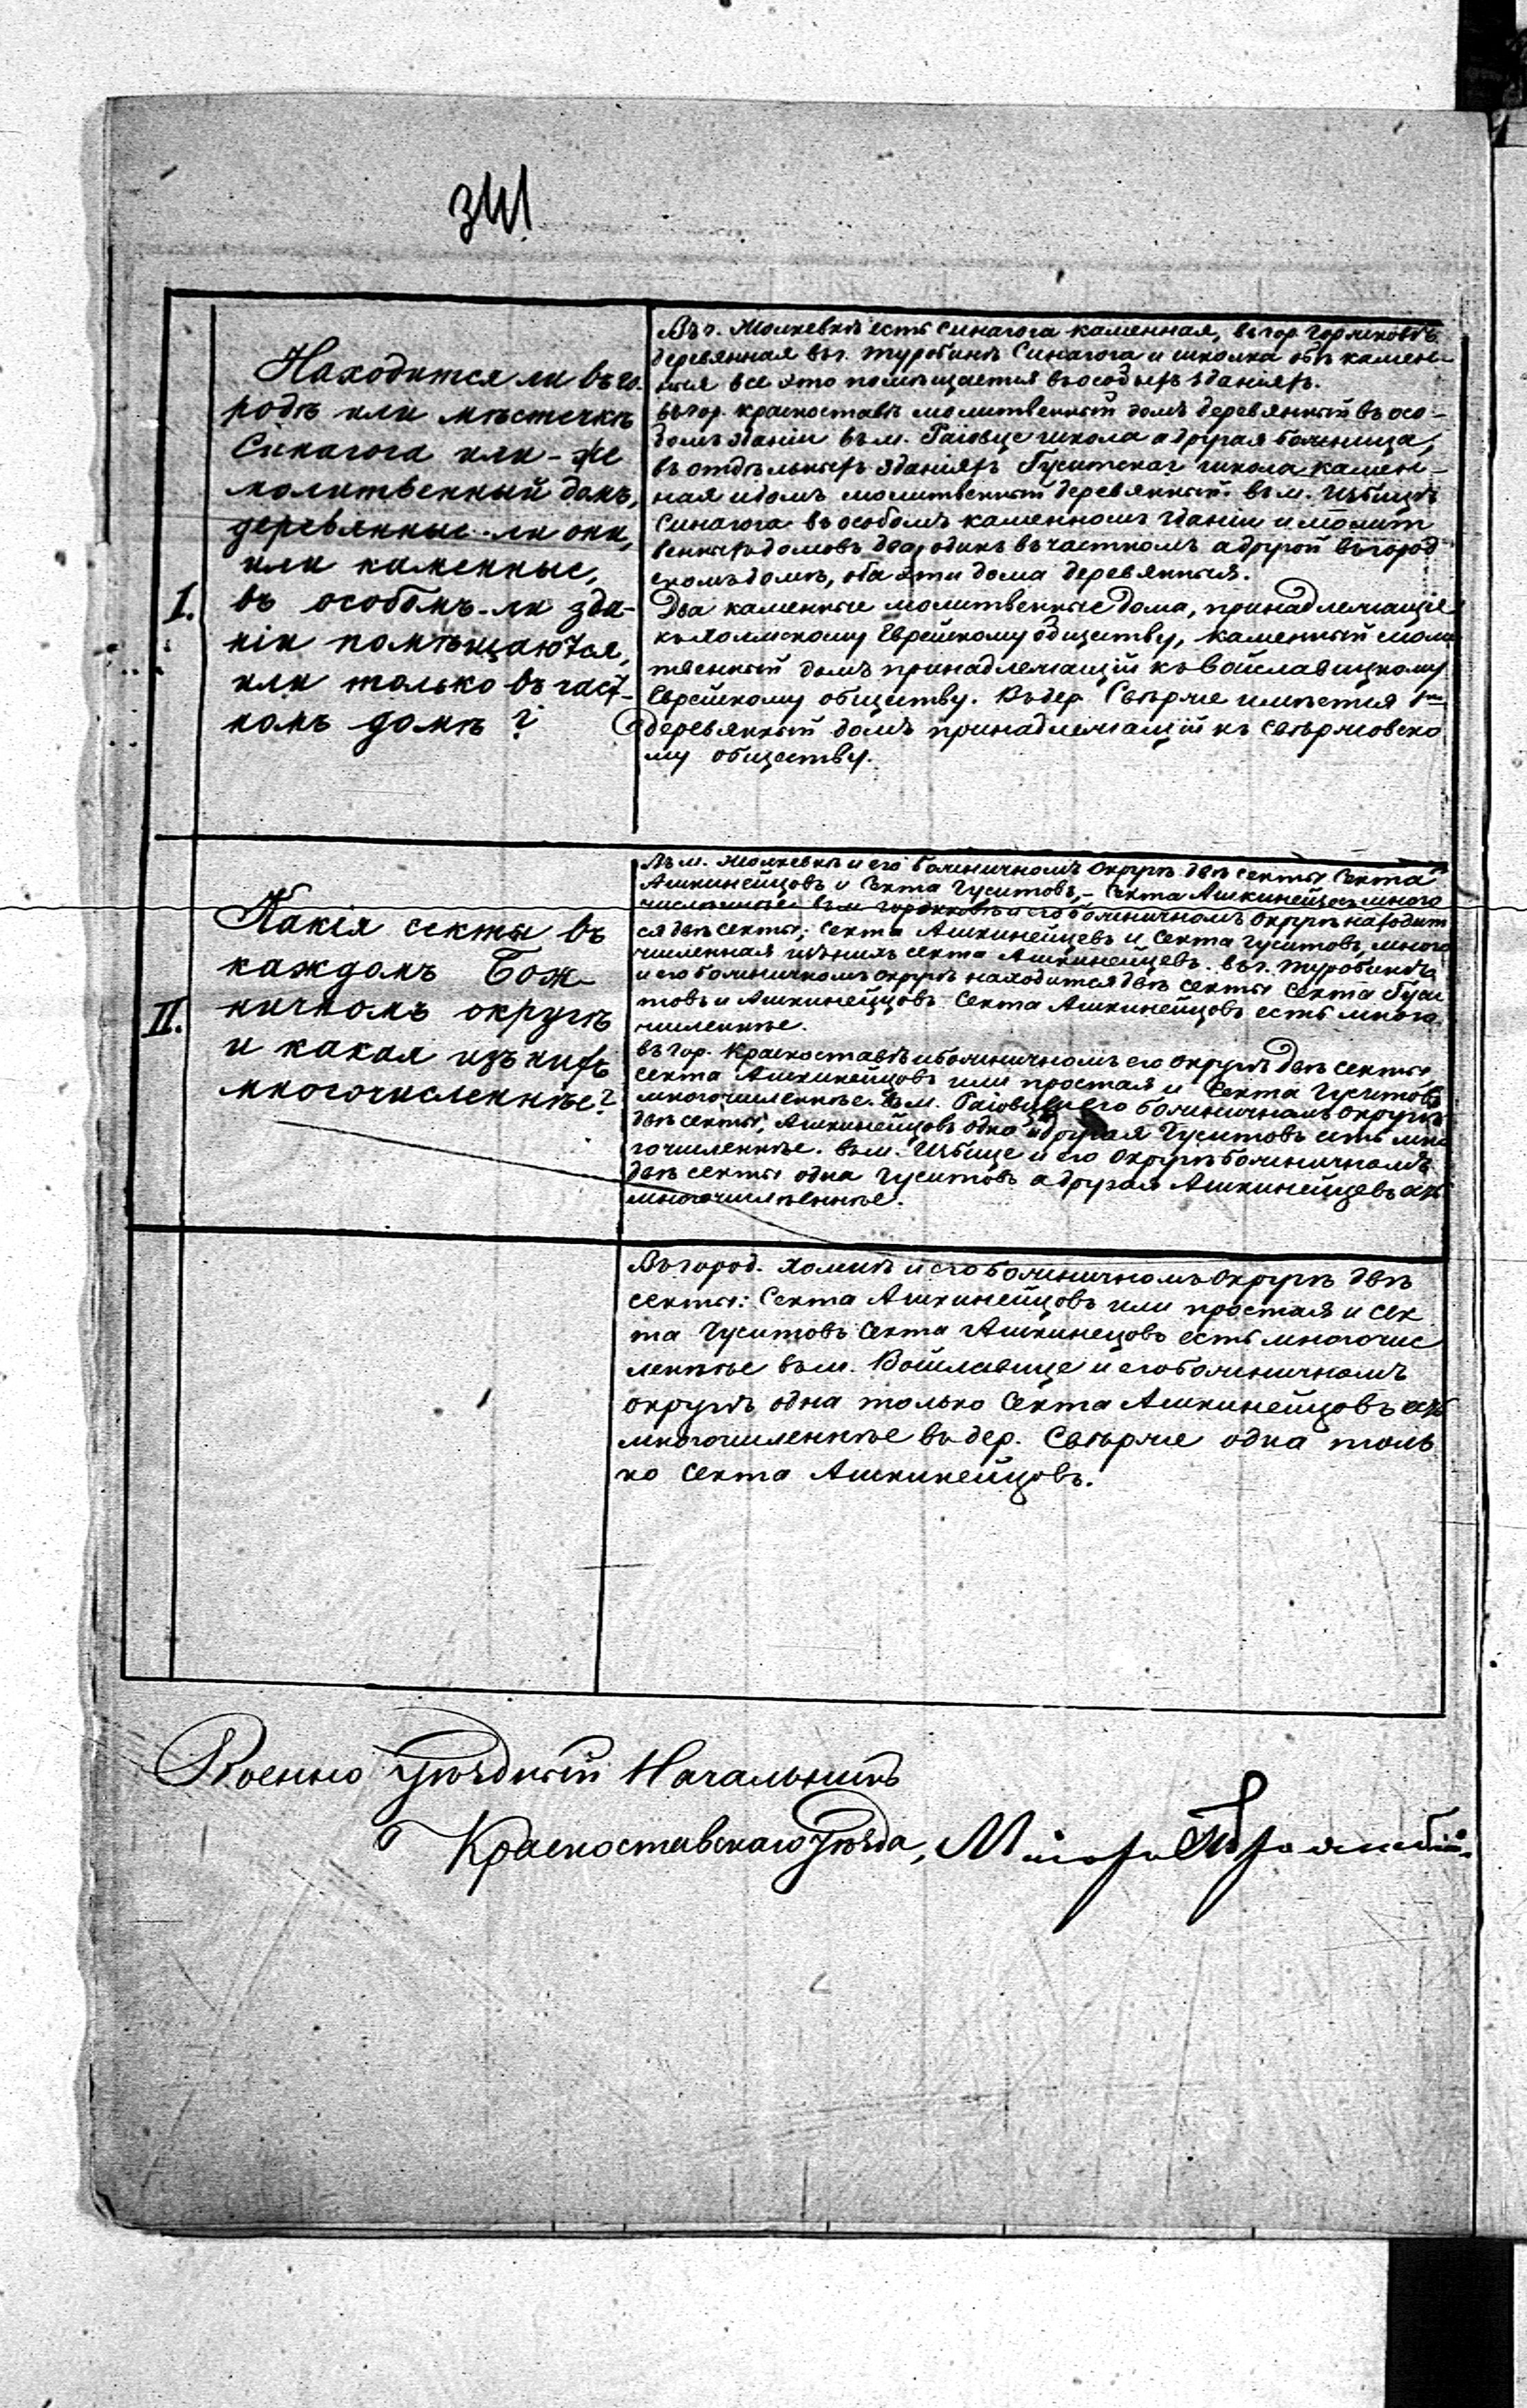 I.
Находится ли въ го-
родѣ или мѣстечкѣ
Синагога или-же
молитвенный домъ,
деревянные-ли они,
или каменные,
въ особомъ-ли зда-
ніи помѣщаются,
или только въ част-
номъ домѣ?
Въ г. Жолкевкѣ есть синагога каменная, въ гор. Горжковѣ
деревянная въ г. Туробинѣ Синагога и школка обѣ камен-
ныя все это помѣщается въ особыхъ зданіяхъ.
въ гор. Красноставѣ молитвенный домъ деревянный въ осо-
бомъ зданіи въ м. Раіовце школа а другая божница,
въ отдѣльныхъ зданіяхъ Гуситская школа камен-
ная и домъ молитвенный деревянный. въ м. Избицѣ
Синагога въ особомъ каменномъ зданіи и молит
венныхъ домовъ два, одинъ въ частномъ а другой въ город
скомъ домѣ, оба эти дома деревянныя.
Два каменные молитвенные дома, принадлежащіе
къ холмскому Еврейскому обществу, каменный моли
твенный домъ принадлежащій къ Войславицкому
Еврейскому обществу. Въ дер. Свѣрже имѣется
деревянный домъ принадлежащій къ свѣржовско
му обществу.
II.
Какія секты въ
каждомъ Бож-
ничномъ округѣ
и какая изъ нихъ
многочисленнѣе?
Въ м. Жолкевкѣ и его божничномъ округѣ двѣ секты Секта
Ашкинейцовъ и Секта Гуситовъ, - Секта Ашкинейцовъ много
численнѣе въ м. Горжковѣ и его божничномъ округѣ находит
ся двѣ секты; Секта Ашкинейцевъ и Секта Гуситовъ, много
численная изъ нихъ секта Ашкинейцевъ. въ г. Туробинѣ
и его божничномъ округѣ находится двѣ секты Секта Гуси
товъ и Ашкинейцовъ Секта Ашкинейцовъ есть много
численнѣе.
въ гор. Красноставѣ и божничномъ его округѣ двѣ секты
секта Ашкинейцовъ или простая и Секта Гуситовъ
многочисленнѣе. Въ м. Раіовце и его божничномъ округѣ
двѣ секты; Ашкинейцовъ одна а другая Гуситовъ есть мно
гочисленнѣе. въ м. Избице и его округѣ божничномъ
двѣ секты одна Гуситовъ а другая Ашкинейцевъ
многочисленнѣе.
Въ город. Холмѣ и его божничномъ округѣ двѣ
секты: Секта Ашкинейцовъ или простая и сек
та Гуситовъ Секта Ашкинецовъ есть многочис
леннѣе въ м. Войславице и его божничномъ
округѣ одна только Секта Ашкинейцовъ
многочисленнѣе въ дер. Свѣрже одна толь
ко Секта Ашкинейцовъ.
Военно Уѣздный Начальникъ
Красноставскаго Уѣзда, Маіоръ